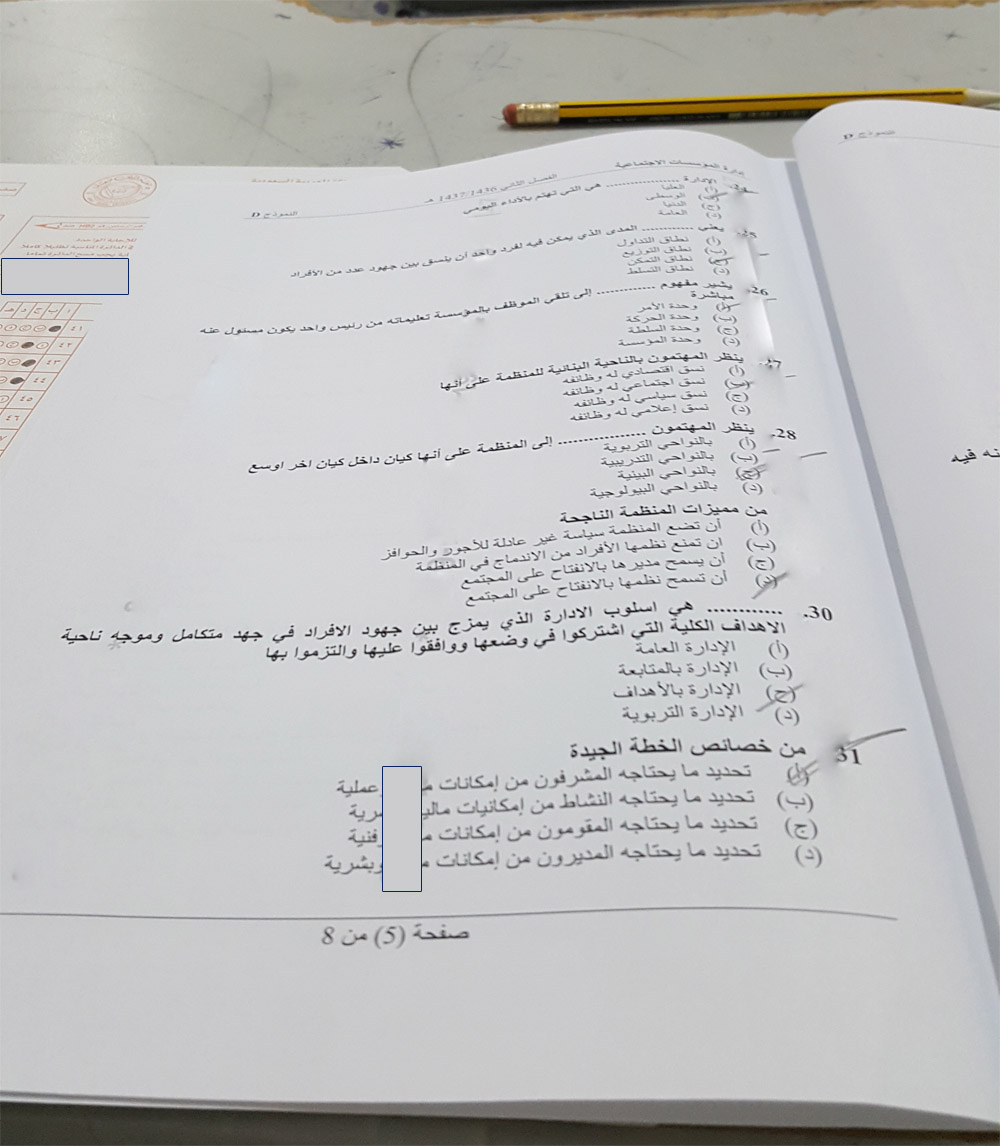 إدارة المؤسسات الاجتماعية
الفصل الثاني 1437/1436 هـ
النموذج D
24. الإدارة ................ هي التي تهتم بالأداء اليومي
(أ) العليا
(ب) الوسطى
(ج) الدنيا
(د) العامة
25. يعني ............ المدى الذي يمكن فيه لفرد واحد ان ينسق بين جهود عدد من الافراد
(أ) نطاق التداول
(ب) نطاق التوزيع
(ج) نطاق التمكن
(د) نطاق التسلط
26. يشير مفهوم ............ إلى تلقي الموظف بالمؤسسة تعليماته من رئيس واحد يكون مسئول عنه
مباشرة
(أ) وحدة الأمر
(ب) وحدة الحركة
(ج) وحدة السلطة
(د) وحدة المؤسسة
27. ينظر المهتمون بالناحية البنائية للمنظمة على أنها
(أ) نسق اقتصادي له وظائفه
(ب) نسق اجتماعي له وظائفه
(ج) نسق سياسي له وظائفه
(د) نسق إعلامي له وظائفه
28. ينظر المهتمون ................ إلى المنظمة على أنها كيان داخل كيان اخر اوسع
(أ) بالنواحي التربوية
(ب) بالنواحي التدريبية
(ج) بالنواحي البيئية
(د) بالنواحي البيولوجية
من مميزات المنظمة الناجحة
(أ) أن تضع المنظمة سياسة غير عادلة للأجور والحوافز
(ب) ان تمنع نظمها الأفراد من الاندماج في المنظمة
(ج) أن يسمح مديرها بالانفتاح على المجتمع
(د) أن تسمح نظمها بالانفتاح على المجتمع
30. ............ هي اسلوب الادارة الذي يمزج بين جهود الافراد في جهد متكامل وموجه ناحية
الاهداف الكلية التي اشتركوا في وضعها ووافقوا عليها والتزموا بها
(أ) الإدارة العامة
(ب) الإدارة بالمتابعة
(ج) الإدارة بالأهداف
(د) الإدارة التربوية
31 من خصائص الخطة الجيدة
(أ) تحديد ما يحتاجه المشرفون من إمكانات عملية
(ب) تحديد ما يحتاجه النشاط من إمكانيات
(ج) تحديد ما يحتاجه المقومون من إمكانات فنية
(د) تحديد ما يحتاجه المديرون من إمكانات وبشرية
صفحة (5) من 8
النموذج D
فيه
٤١
٤٢
٤٣
٤٤
٤٥
٤٦